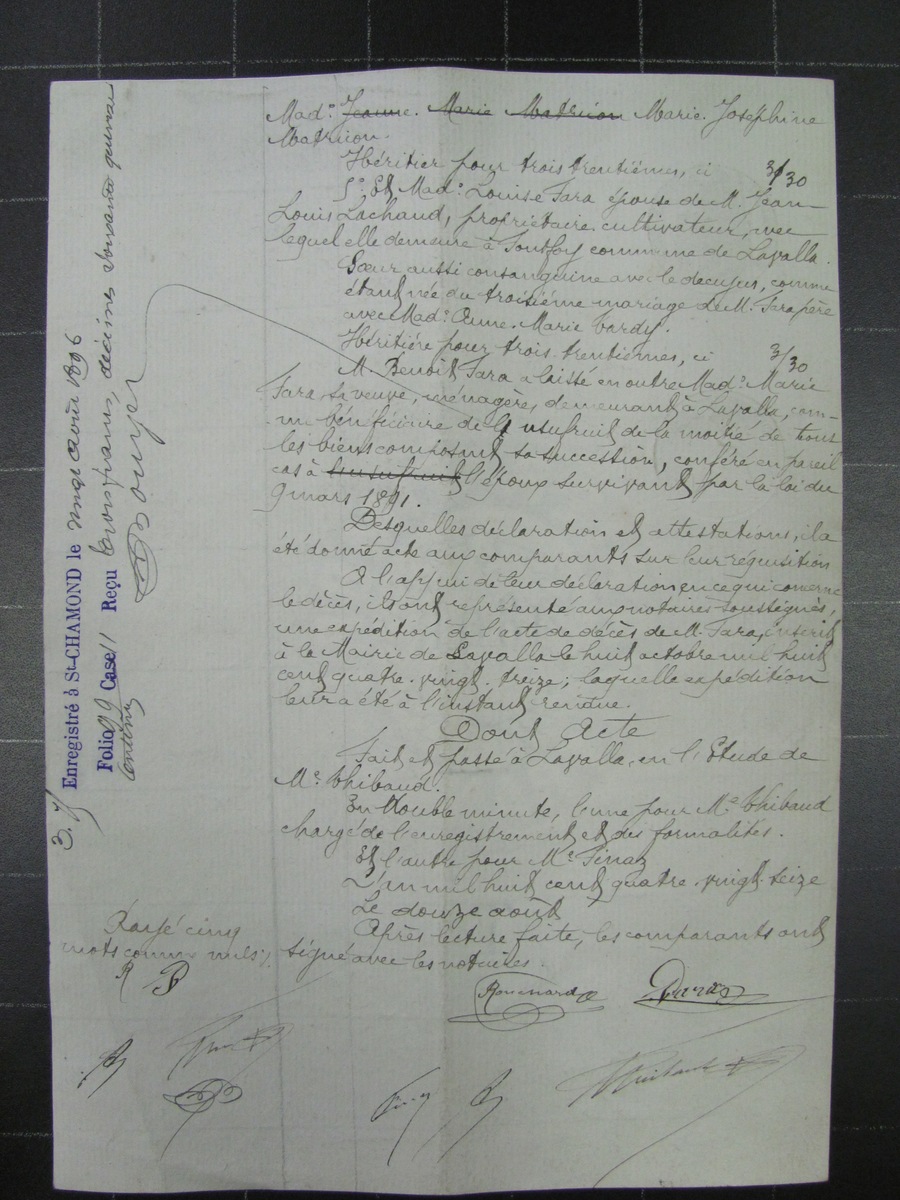 Mad.e Jeanne. Marie Matricon Marie. Joséphine
Matricon.
Héritier pour trois trentièmes, ci 3/30
5° Et Mad.e Louise Fara épouse de M. Jean-
Louis Lachaud, propriétaire cultivateur, avec
lequel elle demeure à commune de Lavalla.
Sœur aussi consanguine avec le decujus, comme
étant née du troisième mariage de M. Fara père
avec Mad.e Anne. Marie
Héritière pour trois trentièmes, ci 3/30
M. Benoit Fara a laissé en outre Mad.e Marie
Fara sa veuve, ménagère, demeurant à Lavalla, com-
me bénéficiaire de l'usufruit de la moitié de tous
les biens composant sa succession, conféré en pareil
cas à l'usufruit l'époux survivant par la loi du
9 mars 1891.
Desquelles déclaration et attestations, il a
été donné acte aux comparants sur leur réquisition
A l'appui de leur déclaration en ce qui concerne
le décès, ils ont représenté aux notaires soussignés,
une expédition de l'acte de décès de M. Fara, inscrit
à la Mairie de Lavalla le huit octobre mil huit
cent quatre. vingt. treize; laquelle expédition
leur a été à l'instant rendue.
Dont Acte
Fait et passé à Lavalla, en l'Etude de
M.e Thibaud.
En double minute, l'une pour M.e Thibaud
chargé de l'enregistrement et des formalités.
Et l'autre pour M.e Finaz
L'an mil huit cent quatre. vingt. seize
Le douze août
Après lecture faite, les comparants ont
signé avec les notaires.
Rayé cinq
mots comme nuls.
Enregistré à St-CHAMOND le vingt août 1896
Folio 99 Case 11 Reçu trois francs, décimes soixante quinze
centimes